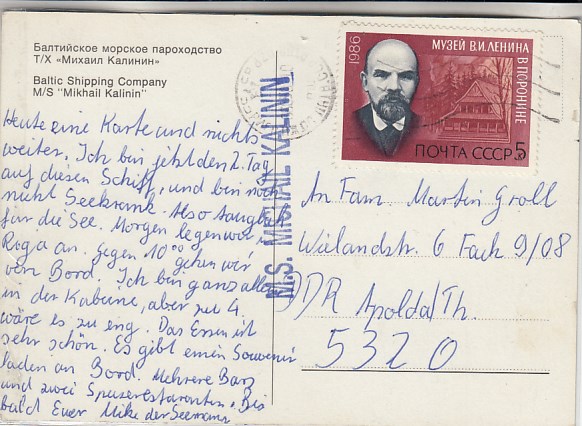 Балтийское морское пароходство
Т/Х «Михаил Калинин»
Baltic Shipping Company
M/S "Mikhail Kalinin"
Heute eine Karte und nichts
weiter. Ich bin jetzt den 2. Tag
auf diesen Schiff, und bin noch
nicht Seekrank. Also tauglich
für die See. Morgen legen wir in
Riga an. Gegen 10 00 gehen wir
von Bord. Ich bin ganz allein
in der Kabine, aber zu 4
wäre es zu eng. Das Essen ist
sehr schön. Es gibt einen Souvenir
laden an Bord. Mehrere Bars
und zwei Speiserestaranten. Bis
bald Euer Mike der Seemann
M.S. MICHAIL KALININ
1986
МУЗЕЙ В.И.ЛЕНИНА
В ПОРОНИНЕ
ПОЧТА СССР 5к
An Fam. Martin Groll
Wielandstr. 6 Fach 9/08
DDR Apolda/Th.
5320